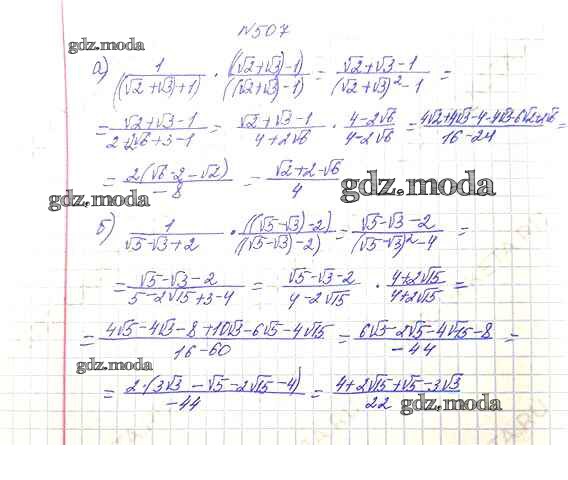 №507
gdz.moda
а) 1/((√2+√3)+1) · ((√2+√3)-1)/((√2+√3)-1) = (√2+√3-1)/((√2+√3)²-1) =
= (√2+√3-1)/(2+2√6+3-1) = (√2+√3-1)/(4+2√6) · (4-2√6)/(4-2√6) = (4√2+4√3-4-4√3-6√2+2√6)/(16-24)
= 2(√6-2-√2)/-8 = (√2+2-√6)/4
gdz.moda
gdz.moda
б) 1/(√5-√3+2) · ((√5-√3)-2)/((√5-√3)-2) = (√5-√3-2)/((√5-√3)²-4) =
= (√5-√3-2)/(5-2√15+3-4) = (√5-√3-2)/(4-2√15) · (4+2√15)/(4+2√15) =
= (4√5-4√3-8+10√3-6√5-4√15)/(16-60) = (6√3-2√5-4√15-8)/-44 =
gdz.moda
= 2·(3√3-√5-2√15-4)/-44 = (4+2√15+√5-3√3)/22
gdz.moda